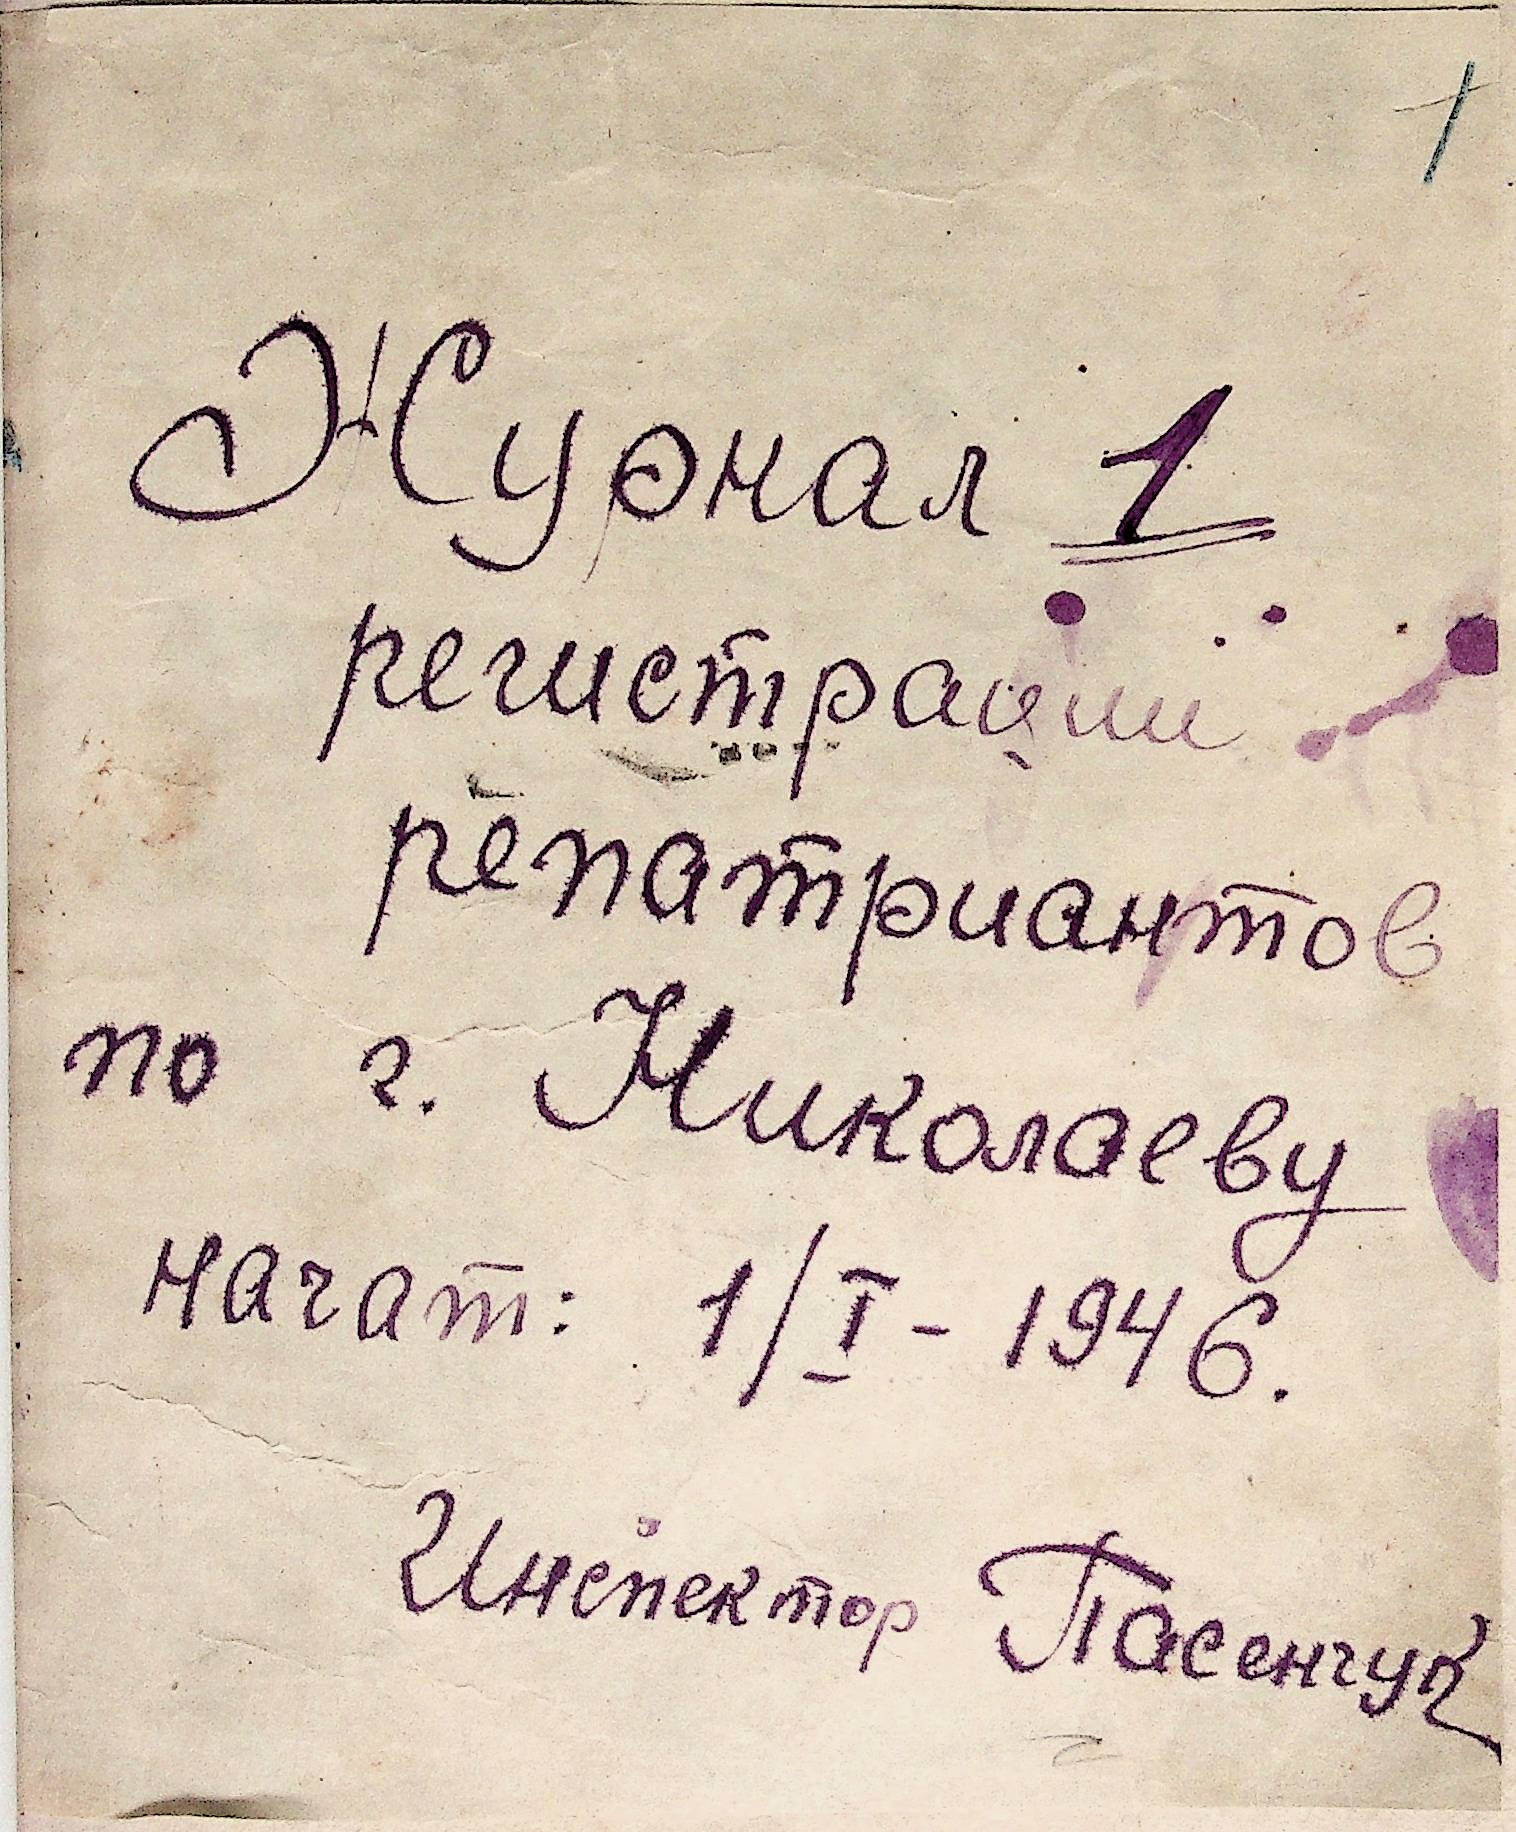 1
Журнал 1
регистрации
репатриантов
по г. Николаеву
начат: 1/I - 1946.
Инспектор Пасенчук